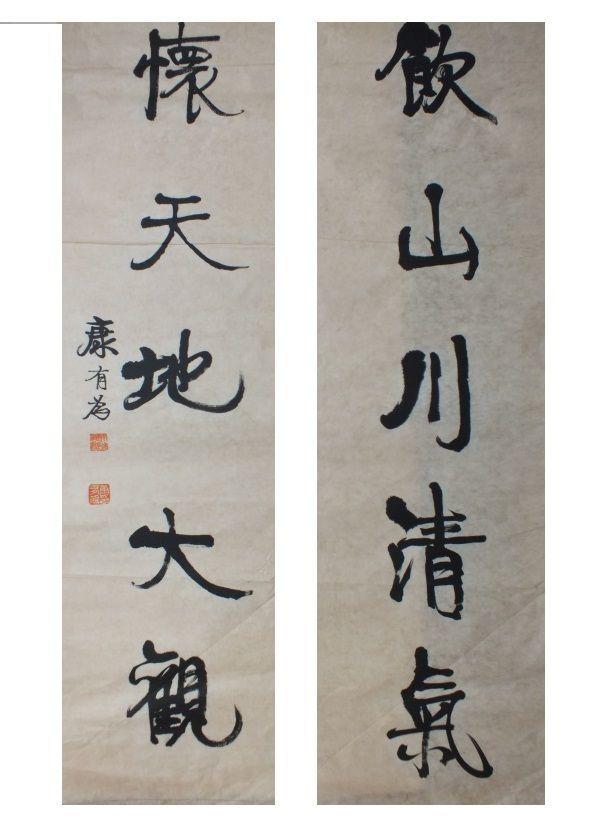 飲山川清氣
懷天地大觀
康有為